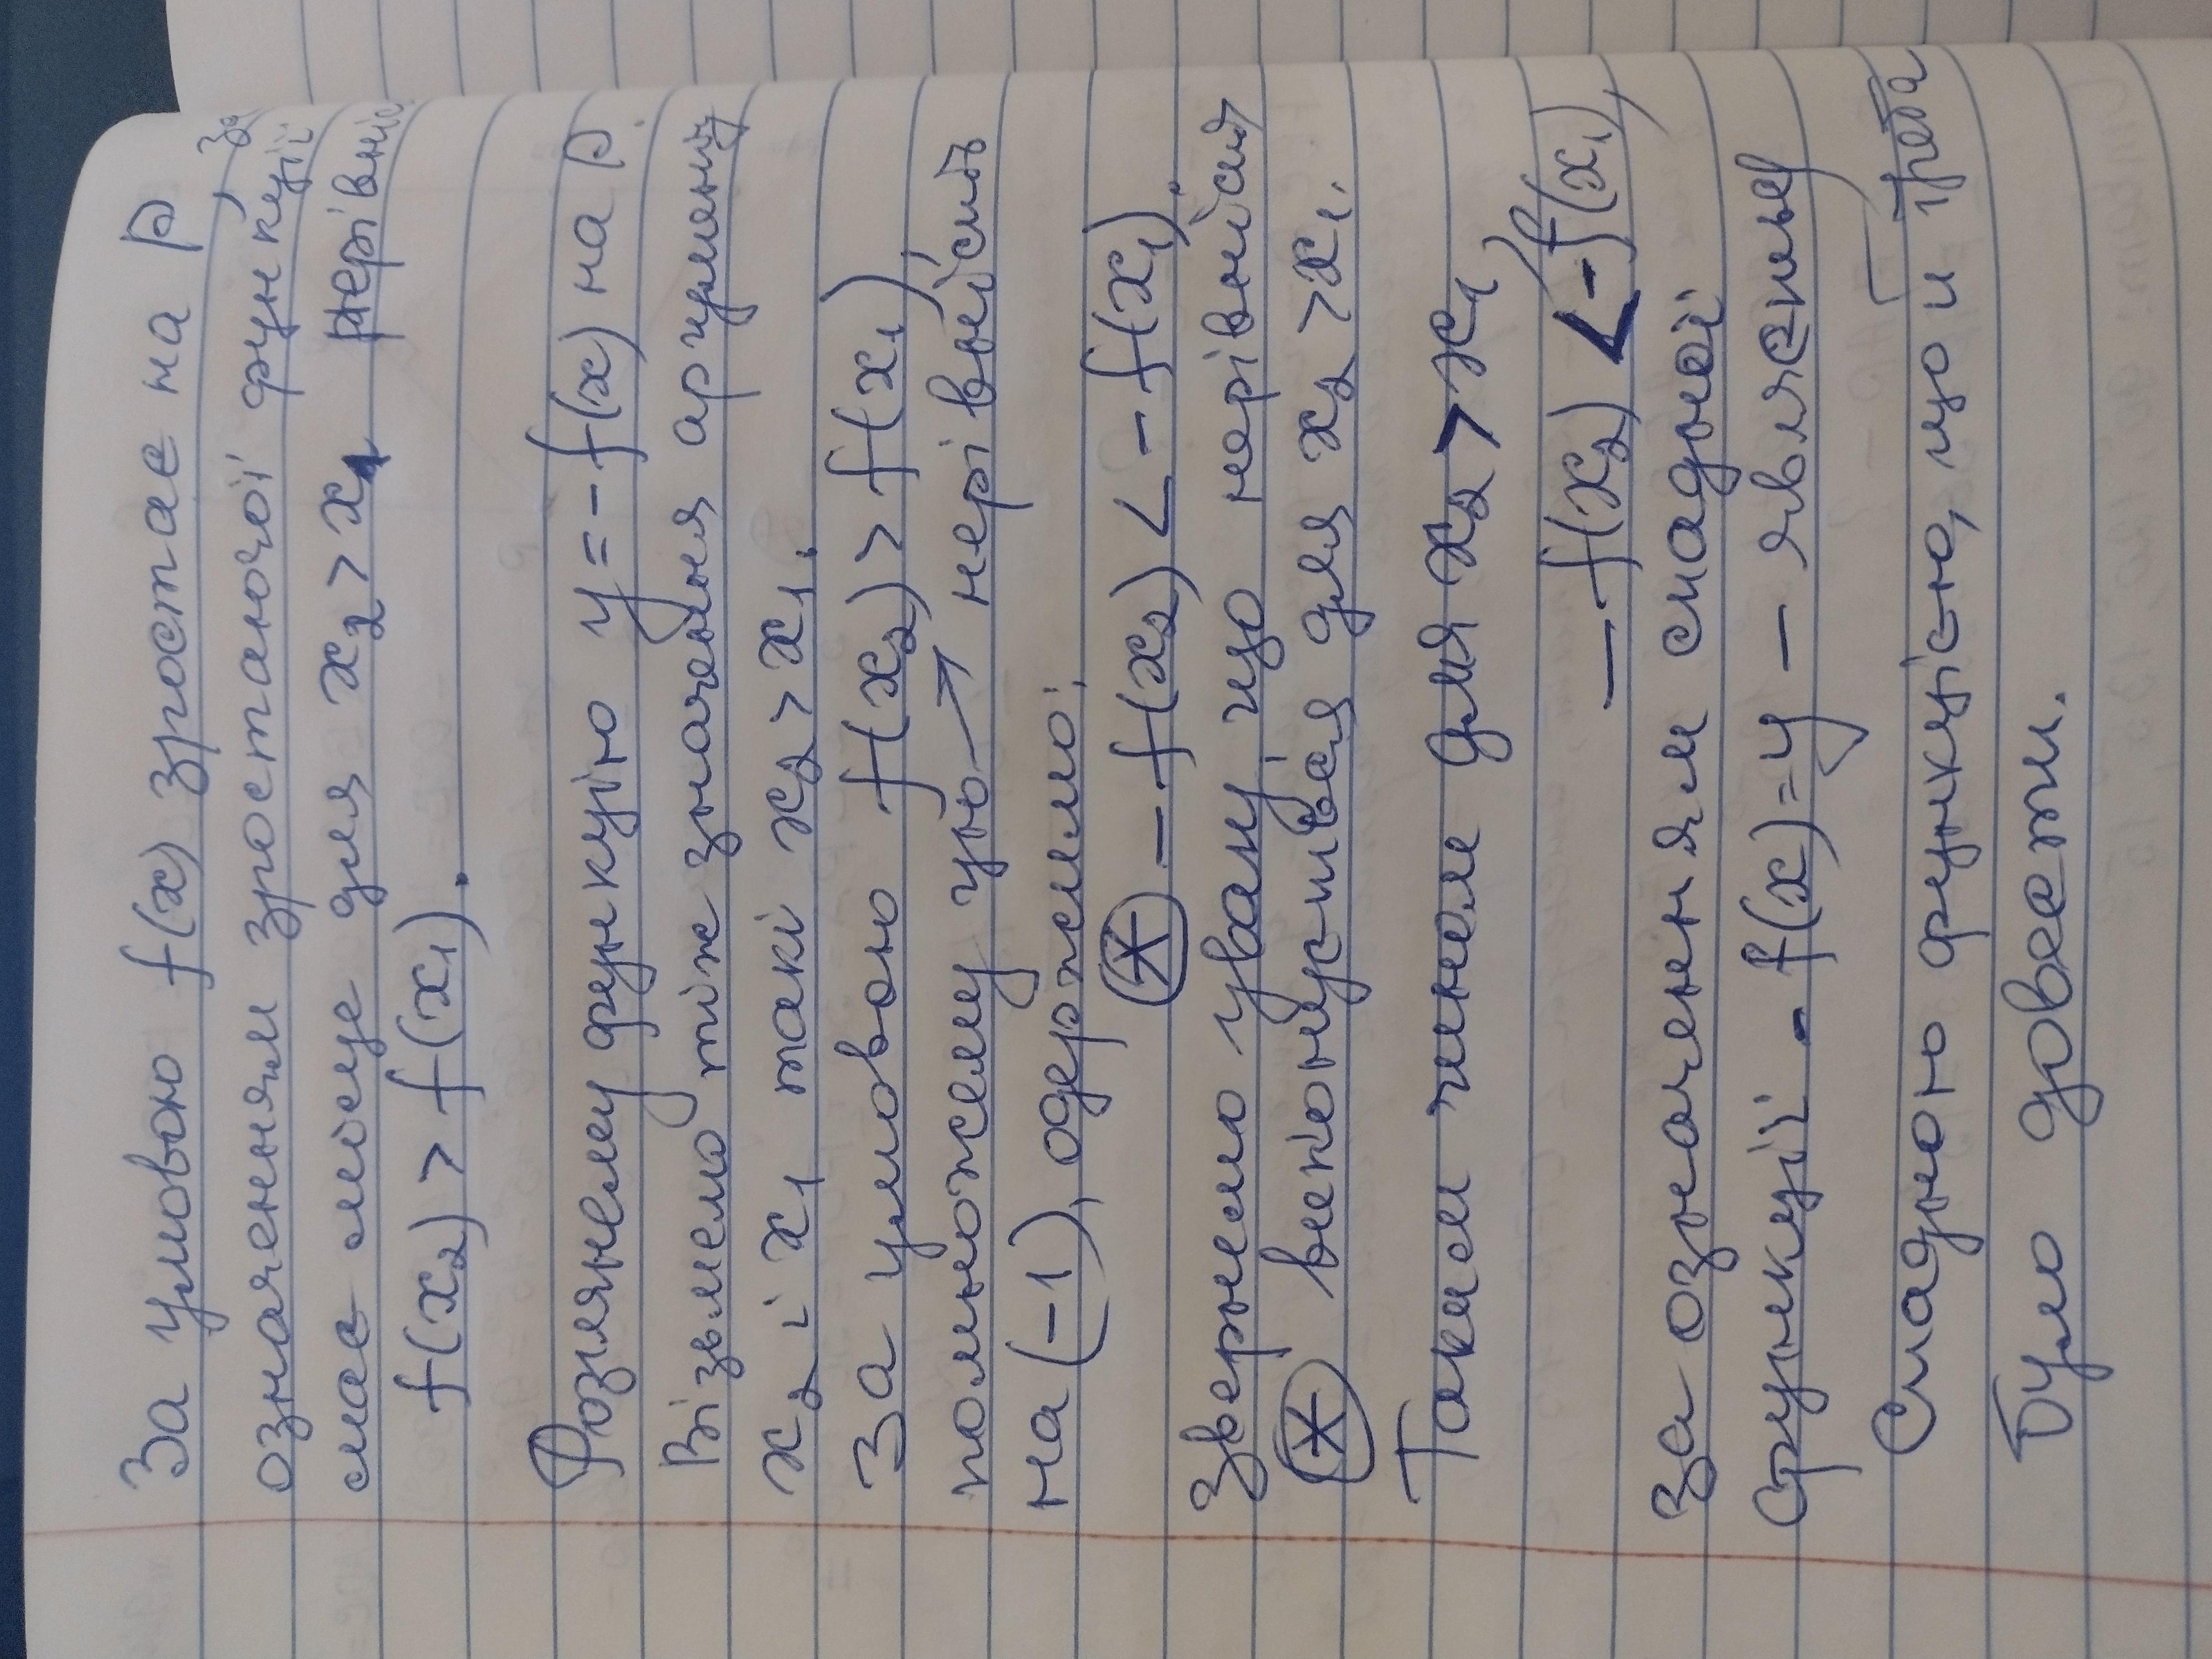 За умовою f(x) зростає на P, За
означенням зростаючої функції
має місце для x₂ > x₁ нерівніс
f(x₂) > f(x₁).
Розглянему функцію y = - f(x) на P.
Візьмемо тіж значення аргументу
x₂ і x₁ такі x₂ > x₁.
За умовою f(x₂) > f(x₁),
помножему цю → нерівність
на (-1), одержимо:
(*) - f(x₂) < - f(x₁).
Звернемо увагу, що нерівність
(*) виконується для x₂ > x₁.
Таким чином для x₂ > x₁,
- f(x₂) < - f(x₁),
За означенням спадної
функції - f(x) = y - являєтьсє
Спадною функцією, що й треба
Було довести.